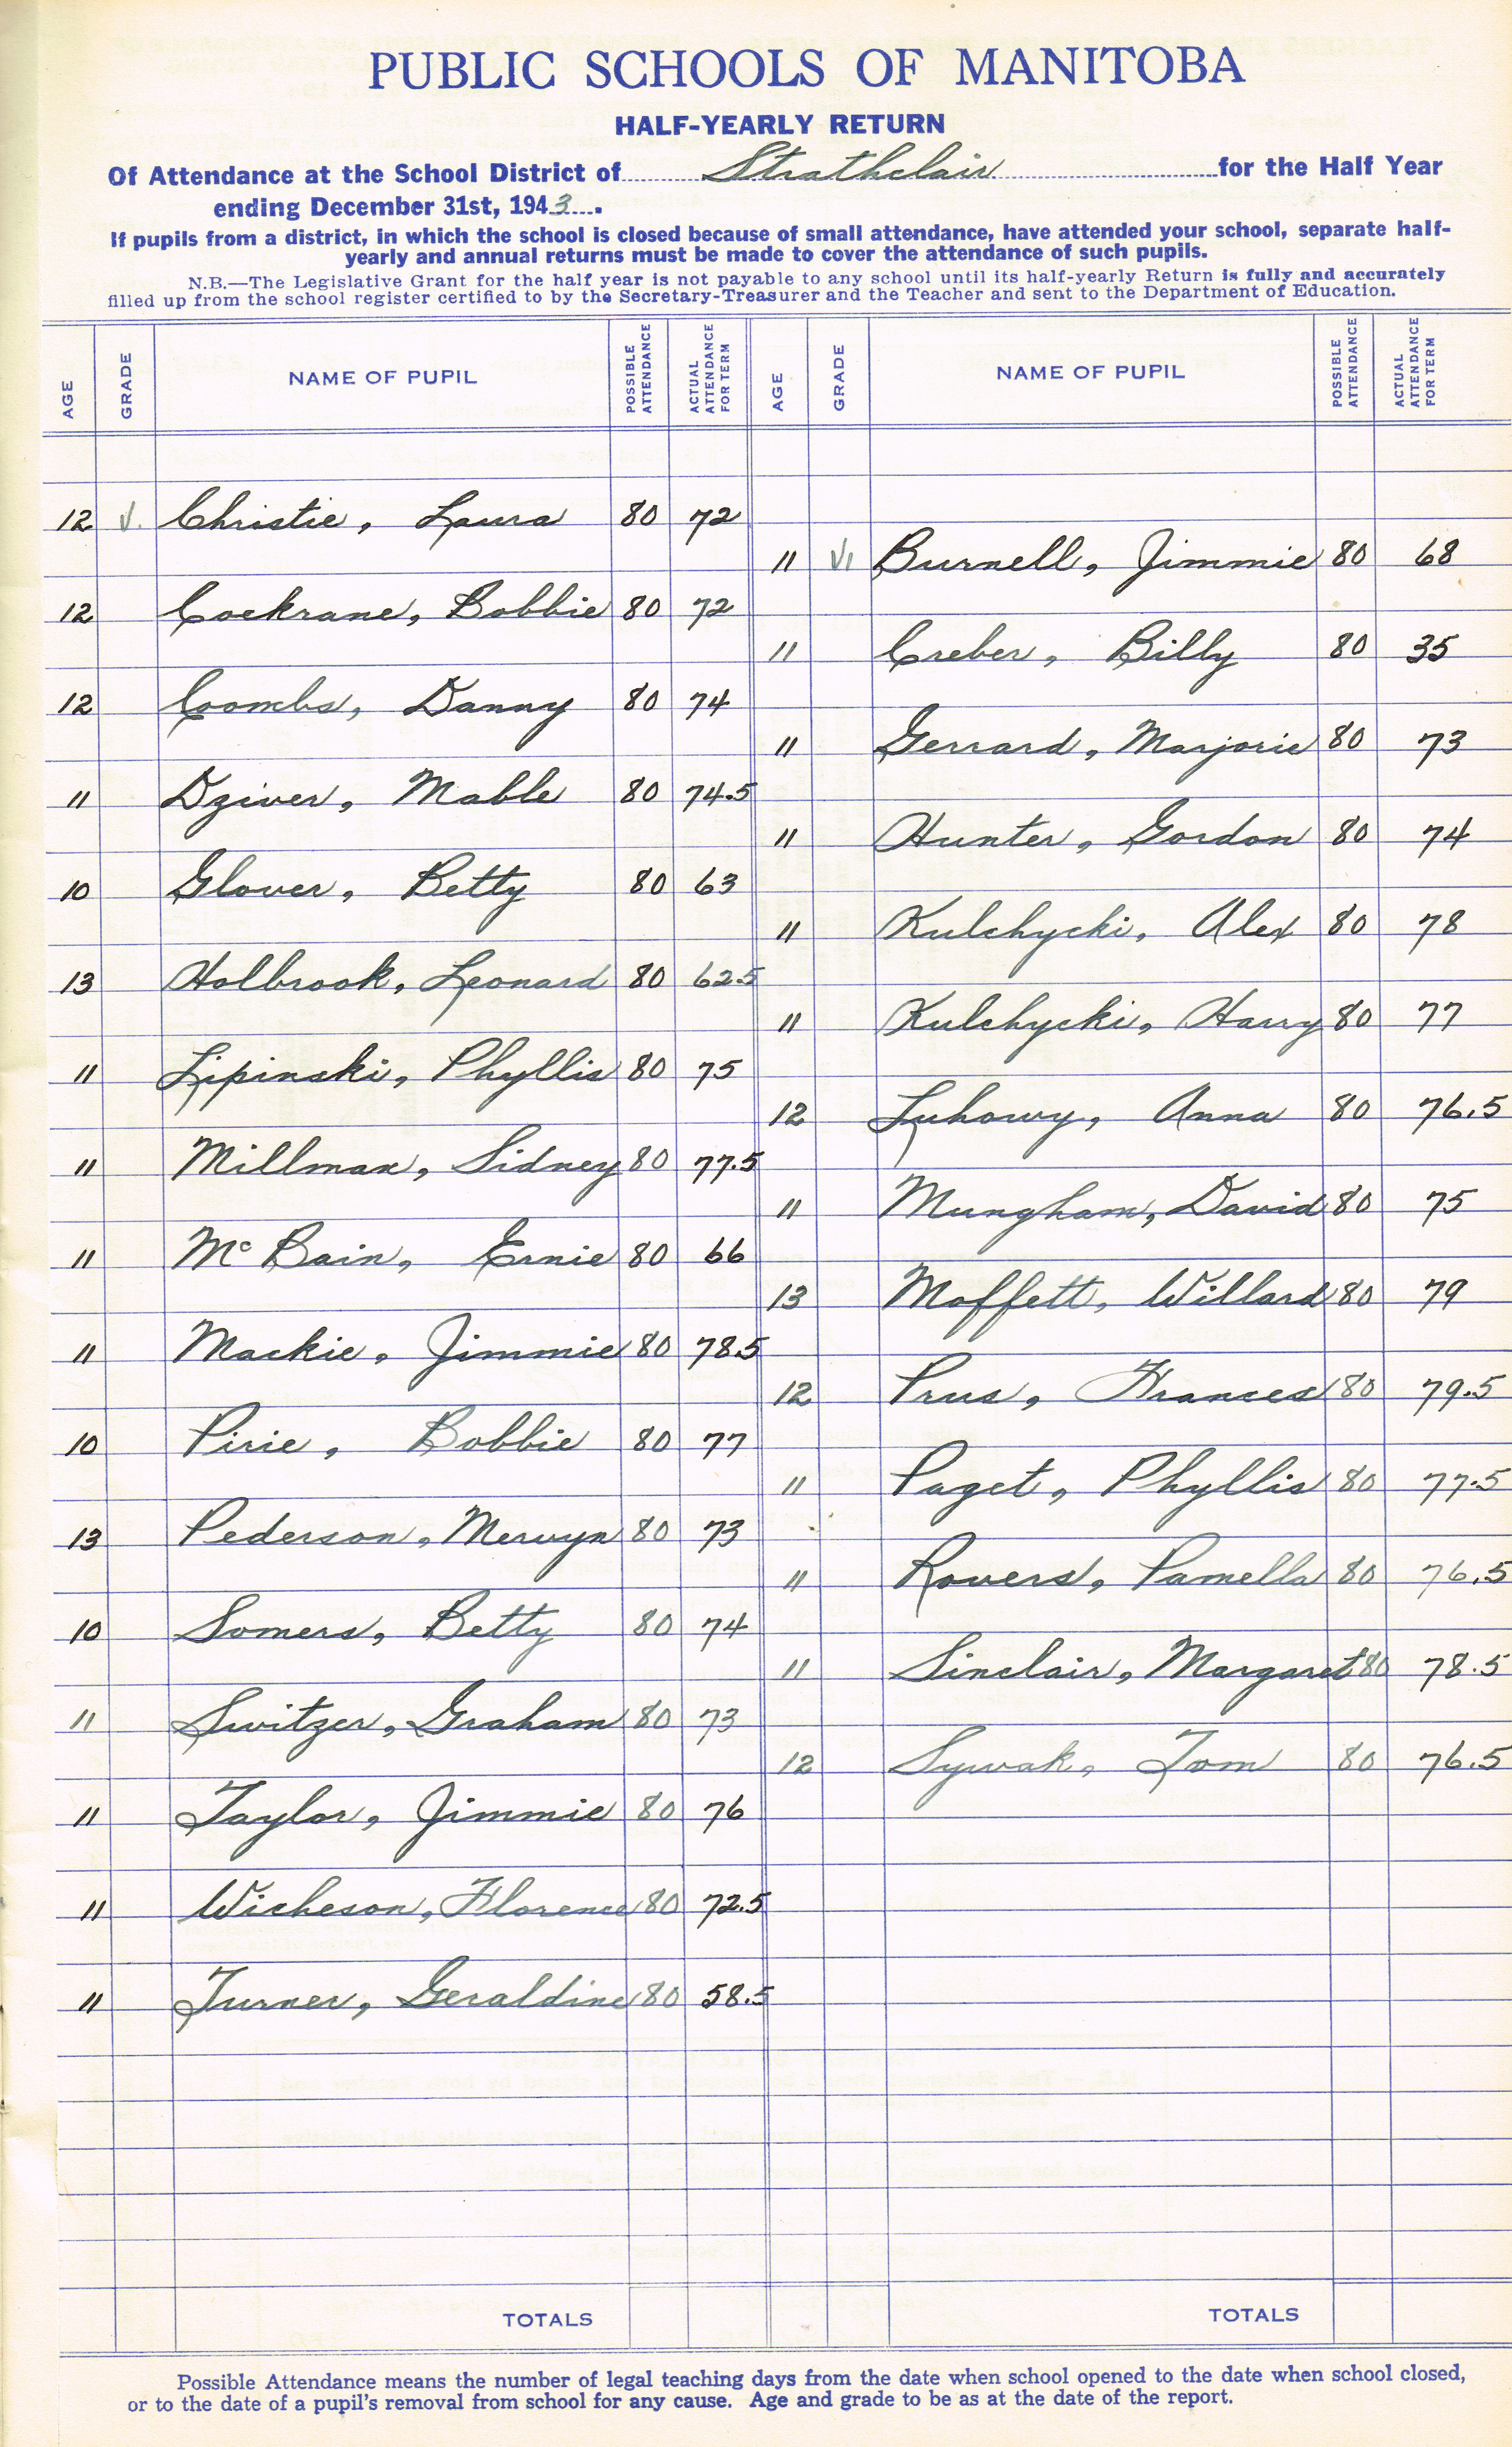 PUBLIC SCHOOLS OF MANITOBA
HALF-YEARLY RETURN
Of Attendance at the School District of Strathclair for the Half Year
ending December 31st, 1943.
If pupils from a district, in which the school is closed because of small attendance, have attended your school, separate half-
yearly and annual returns must be made to cover the attendance of such pupils.
N.B.—The Legislative Grant for the half year is not payable to any school until its half-yearly Return is fully and accurately
filled up from the school register certified to by the Secretary-Treasurer and the Teacher and sent to the Department of Education.
AGE GRADE NAME OF PUPIL POSSIBLE ATTENDANCE ACTUAL ATTENDANCE FOR TERM
12 V. Christie, Laura 80 72
12 Cockrane, Bobbie 80 72
12 Coombs, Danny 80 74
11 Dziver, Mable 80 74.5
10 Glover, Betty 80 63
13 Holbrook, Leonard 80 62.5
11 Lipinski, Phyllis 80 75
11 Millman, Sidney 80 77.5
11 McBain, Ernie 80 66
11 Mackie, Jimmie 80 78.5
10 Pirie, Bobbie 80 77
13 Pederson, Mervyn 80 73
10 Somers, Betty 80 74
11 Switzer, Graham 80 73
11 Taylor, Jimmie 80 76
11 Wicheson, Florence 80 72.5
11 Turner, Geraldine 80 58.5
TOTALS
AGE GRADE NAME OF PUPIL POSSIBLE ATTENDANCE ACTUAL ATTENDANCE FOR TERM
11 VI Burnell, Jimmie 80 68
11 Creber, Billy 80 35
11 Gerrard, Marjorie 80 73
11 Hunter, Gordon 80 74
11 Kulchycki, Alex 80 78
11 Kulchycki, Harry 80 77
12 Luhowy, Anna 80 76.5
11 Mungham, David 80 75
13 Moffett, Willard 80 79
12 Prus, Frances 80 79.5
11 Paget, Phyllis 80 77.5
11 Rovers, Pamella 80 76.5
11 Sinclair, Margaret 80 78.5
12 Sywak, Tom 80 76.5
TOTALS
Possible Attendance means the number of legal teaching days from the date when school opened to the date when school closed,
or to the date of a pupil's removal from school for any cause. Age and grade to be as at the date of the report.